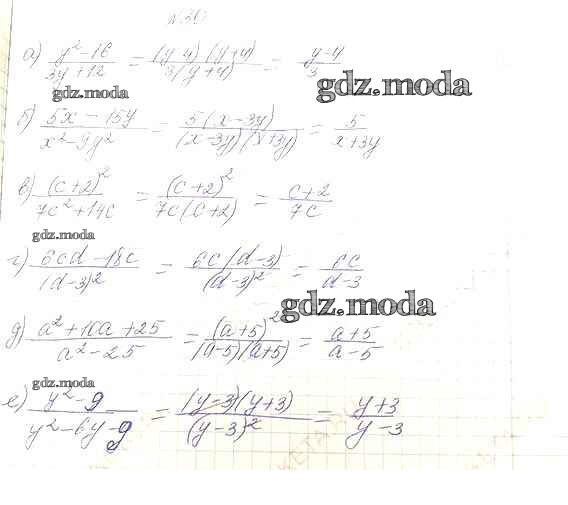 №30
а) y²-16 / 3y+12 = (y-4)(y+4) / 3(y+4) = y-4 / 3
gdz.moda
gdz.moda
б) 5x-15y / x²-9y² = 5(x-3y) / (x-3y)(x+3y) = 5 / x+3y
в) (c+2)² / 7c²+14c = (c+2)² / 7c(c+2) = c+2 / 7c
gdz.moda
г) 6cd-18c / (d-3)² = 6c(d-3) / (d-3)² = 6c / d-3
gdz.moda
д) a²+10a+25 / a²-25 = (a+5)² / (a-5)(a+5) = a+5 / a-5
gdz.moda
е) y²-9 / y²-6y-9 = (y-3)(y+3) / (y-3)² = y+3 / y-3